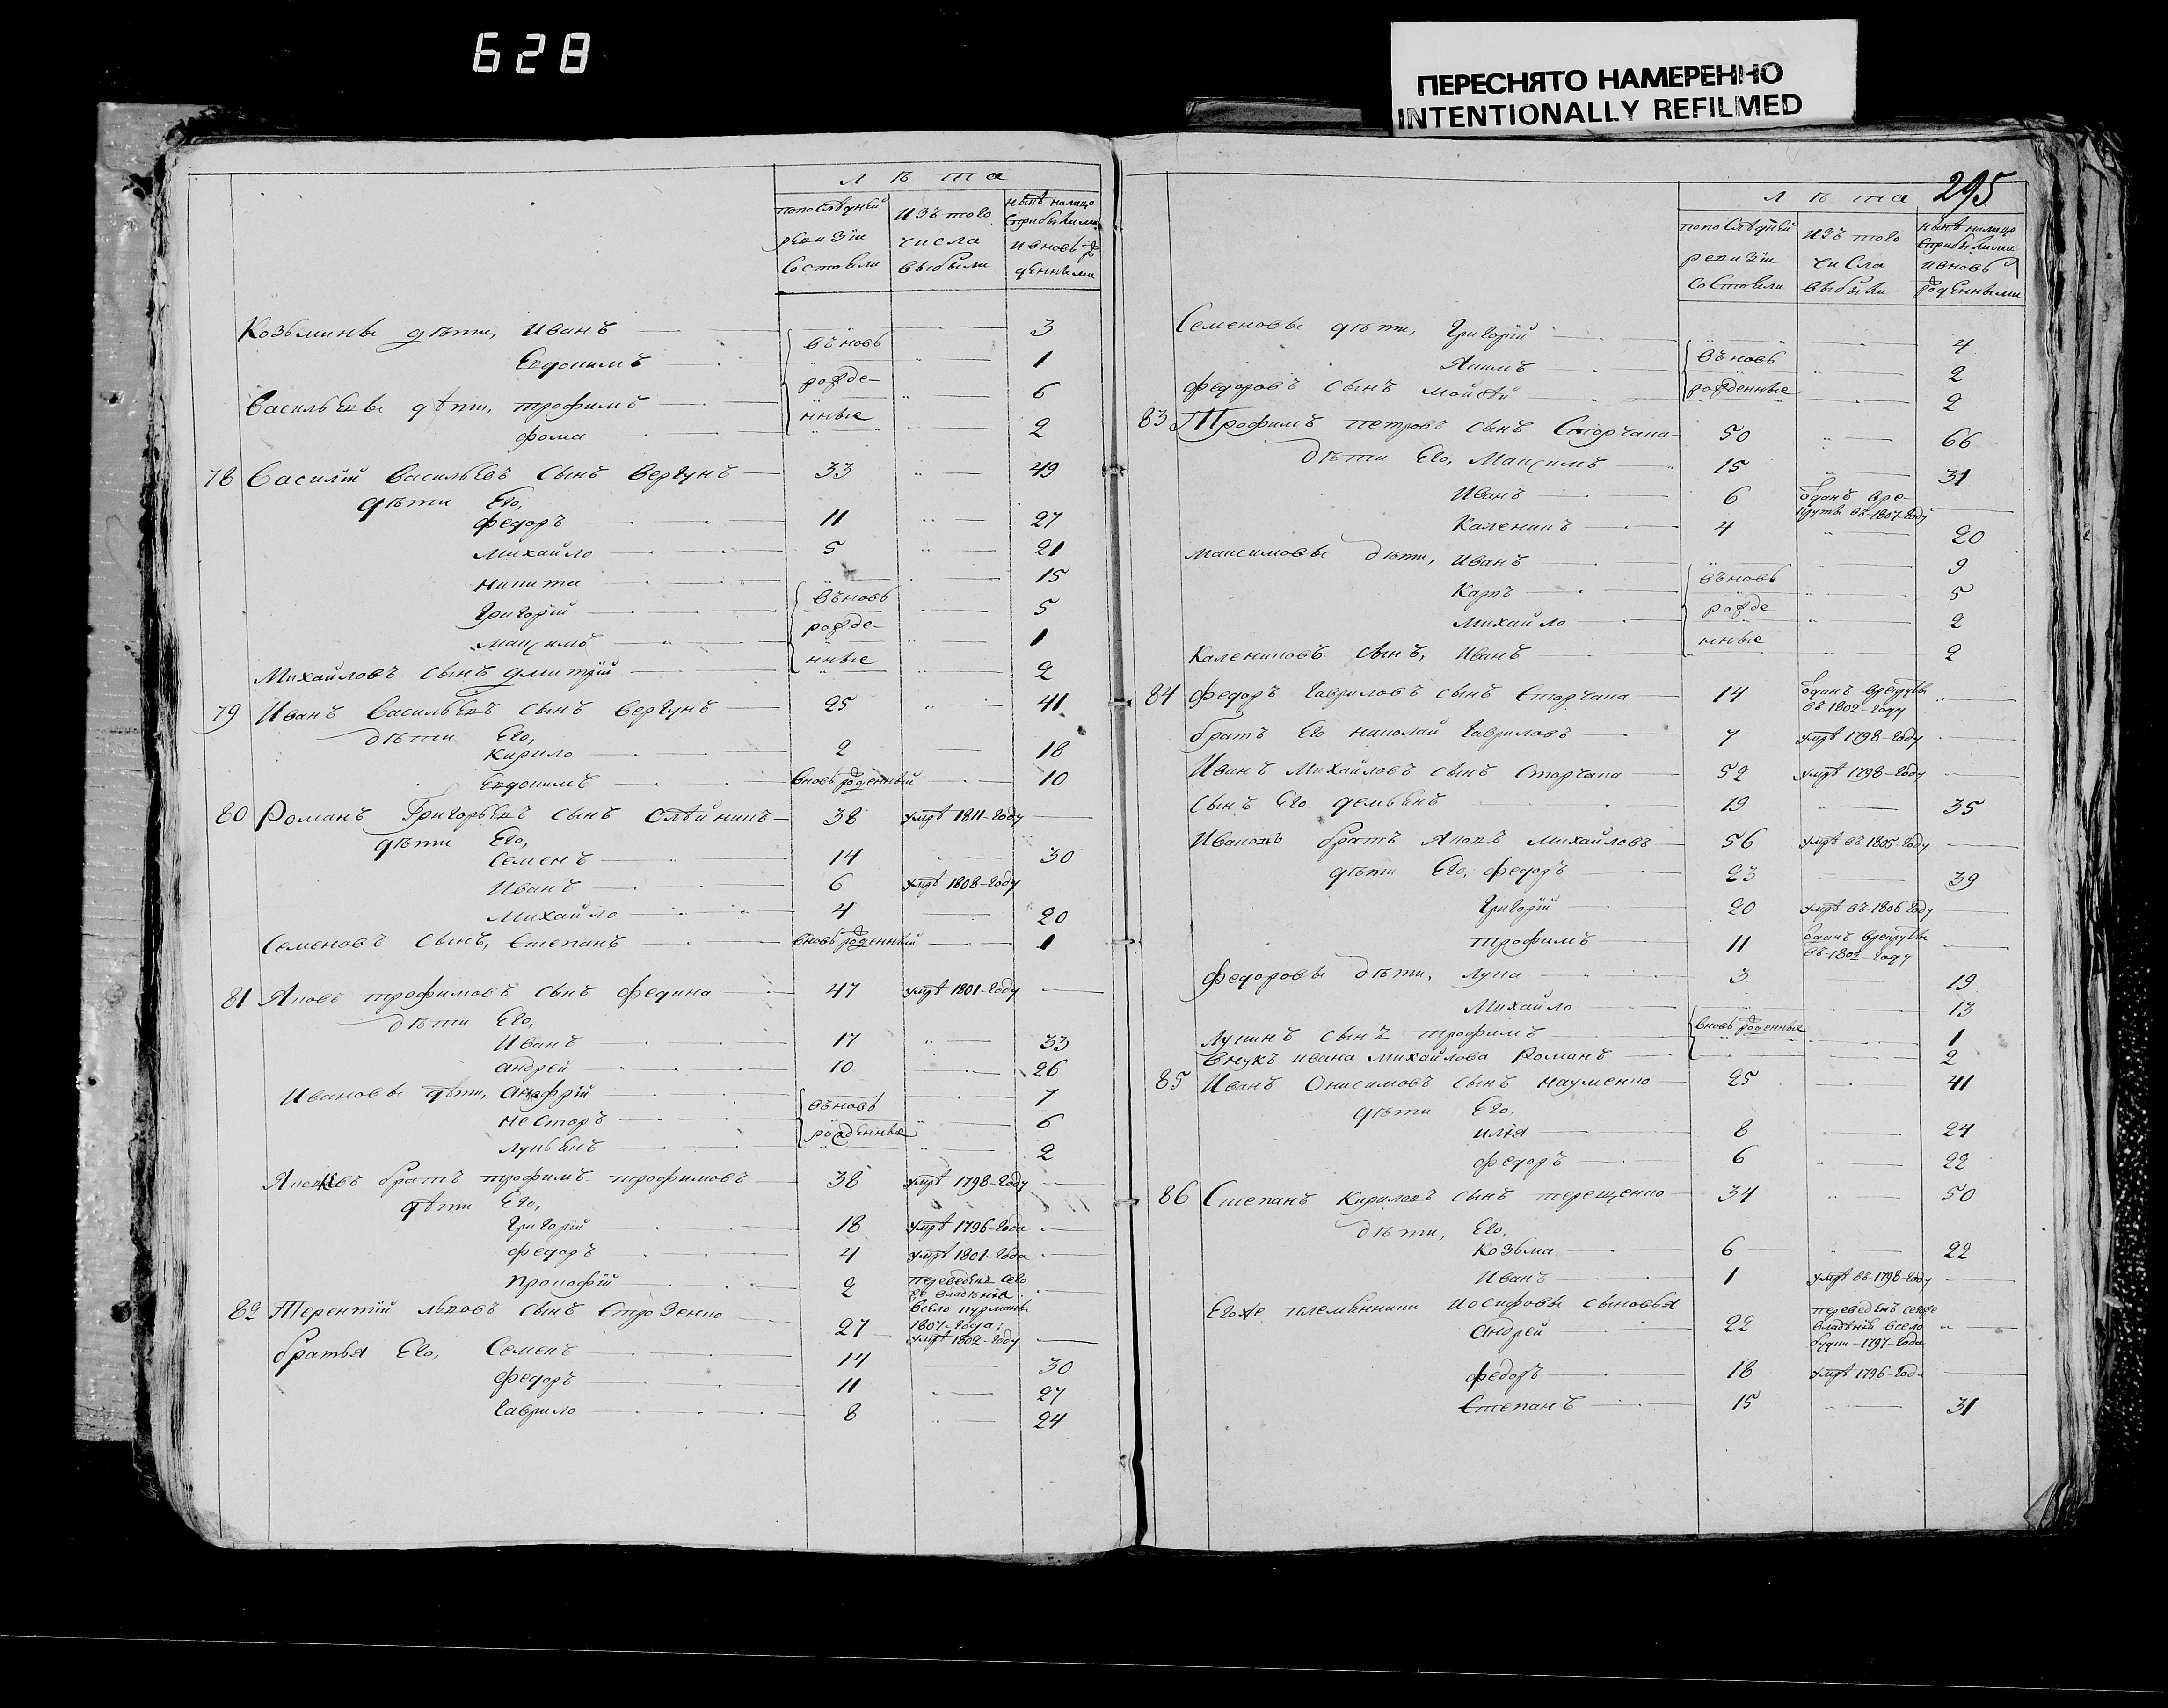 628
ПЕРЕСНЯТО НАМЕРЕННО
INTENTIONALLY REFILMED
лѣта
попослѣдней ревизіи состояли
изъ того числа выбыли
нынѣ налицо сприбылими ивновь рожденными
Козьмины дѣти, Иванъ 3
Евдокимъ въновь 1
Васильевы дѣти, трофимъ рожде- 6
фома нные 2
78 Василій Васильевъ сынъ Вергунъ 33 49
дѣти Его,
федоръ 11 27
Михайло 5 21
Никита 15
Григорій въновь 5
Максимъ рожде- 1
Михайловъ сынъ дмитрій нные 2
79 Иванъ Васильевъ сынъ Вергунъ 25 41
дѣти Его,
Кирило 2 18
Евдокимъ вновь рожденный 10
80 Романъ Григорьевъ сынъ Олѣйникъ 38 умрѣ 1811-году
дѣти Его,
Семенъ 14 30
Иванъ 6 умрѣ 1808-году
Михайло 4 20
Семеновъ сынъ, Степанъ вновь рожденный 1
81 Яковъ трофимовъ сынъ федина 47 умрѣ 1801-году
дѣти Его,
Иванъ 17 33
андрей 10 26
Ивановы дѣти, анофрій 7
несторъ въновь 6
лукьянъ рожденные 2
Яковлевъ братъ трофимъ трофимовъ 38 умрѣ 1798-году
дѣти Его,
Григорій 18 умрѣ 1796-года
федоръ 4 умрѣ 1801-года
прокофій 2 переведенъ сего
владѣнія
всело
1807-года;
82 Терентій львовъ сынъ 27 умрѣ 1802-году
братья Его, Семенъ 14 30
федоръ 11 27
Гаврило 8 24
295
лѣта
попослѣдней ревизіи состояли
изъ того числа выбыли
нынѣ налицо сприбылими ивновь рожденными
Семеновы дѣти, Григорій 4
Якимъ въновь 2
федоровъ сынъ мойсѣй рожденные 2
83 Трофимъ петровъ сынъ Сторчака 50 66
дѣти Его, Максимъ 15 31
Иванъ 6 отданъ вре-
круты въ-1807-году
Каленикъ 4 20
максимовы дѣти, Иванъ 9
Карпъ въновь 5
михайло рожде 2
Калениковъ сынъ, Иванъ нные 2
84 федоръ Гавриловъ сынъ Сторчака 14 отданъ врекруты
въ 1802-году
братъ Его николай Гавриловъ 7 умрѣ 1798-году
Иванъ Михайловъ сынъ Сторчака 52 умрѣ 1798-году
сынъ Его демьянъ 19 35
Ивановъ братъ Яковъ михайловъ 56 умрѣ въ-1805-году
дѣти Его, федоръ 23 39
Григорій 20 умрѣ въ-1806 году
трофимъ 11 отданъ врекруты
въ-1802-году
федоровы дѣти, лука 3 19
Михайло 13
лукинъ сынъ трофимъ вновь рожденные 1
Внукъ ивана михайлова Романъ 2
85 Иванъ Онисимовъ сынъ науменко 25 41
дѣти Его,
илья 8 24
федоръ 6 22
86 Степанъ Кириловъ сынъ терещенко 34 50
дѣти, Его,
козьма 6 22
Иванъ 1 умрѣ въ-1798-году
Егоже племянники иосифовы сыновья
андрей 22 переведенъ
владѣній всело
1797-года
федоръ 18 умрѣ 1796-года
Степанъ 15 31